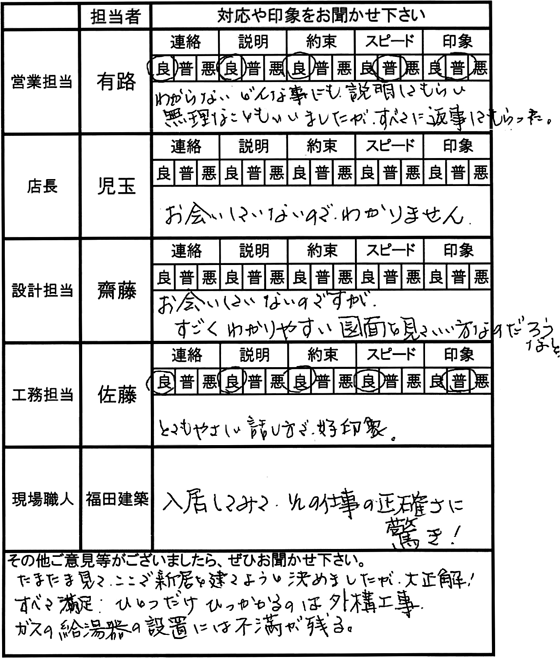 担当者 対応や印象をお聞かせ下さい
営業担当 有路
連絡 説明 約束 スピード 印象
良 普 悪 良 普 悪 良 普 悪 良 普 悪 良 普 悪
わからない どんな事にも、説明してもらい
無理なこともいいましたが、すべてに返事してもらった。
店長 児玉
連絡 説明 約束 スピード 印象
良 普 悪 良 普 悪 良 普 悪 良 普 悪 良 普 悪
お会いしていないので、わかりません。
設計担当 齋藤
連絡 説明 約束 スピード 印象
良 普 悪 良 普 悪 良 普 悪 良 普 悪 良 普 悪
お会いしていないのですが、
すごくわかりやすい図面を見ていい方なのだろう
なと
工務担当 佐藤
連絡 説明 約束 スピード 印象
良 普 悪 良 普 悪 良 普 悪 良 普 悪 良 普 悪
とてもやさしい話し方で、好印象。
現場職人 福田建築
入居してみて、その仕事の正確さに
驚き!
その他ご意見等がございましたら、ぜひお聞かせ下さい。
たまたま見て、ここで新居を建てようと決めましたが、大正解!
すべて満足。ひとつだけひっかかるのは外構工事。
ガスの給湯器の設置には不満が残る。